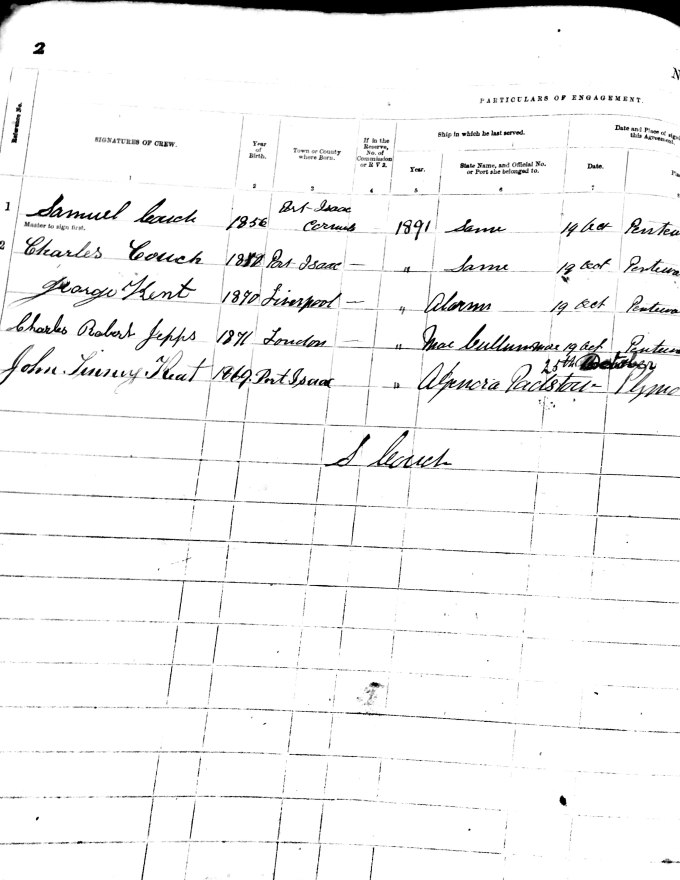 2
N
PARTICULARS OF ENGAGEMENT.
Reference No.
SIGNATURES OF CREW.
Year of Birth.
Town or County where Born.
If in the Reserve, No. of Commission or R V 2.
Ship in which he last served.
Date and Place of signing this Agreement.
Year.
State Name, and Official No. or Port she belonged to.
Date.
1 2 3 4 5 6 7
1 Samuel Couch 1856 Port Isaac Cornwall 1891 Same 19 Oct Pentew
Master to sign first.
2 Charles Couch Port Isaac — " Same 19 Oct Pentewa
George Kent 1870 Liverpool — " Alarm 19 Oct Pentewa
Charles Robert Jepps 1871 London — " Mac 19 Oct Pentew
25th October
John Tinney Keat 1869 Port Isaac " Padstow Plymo
S Couch